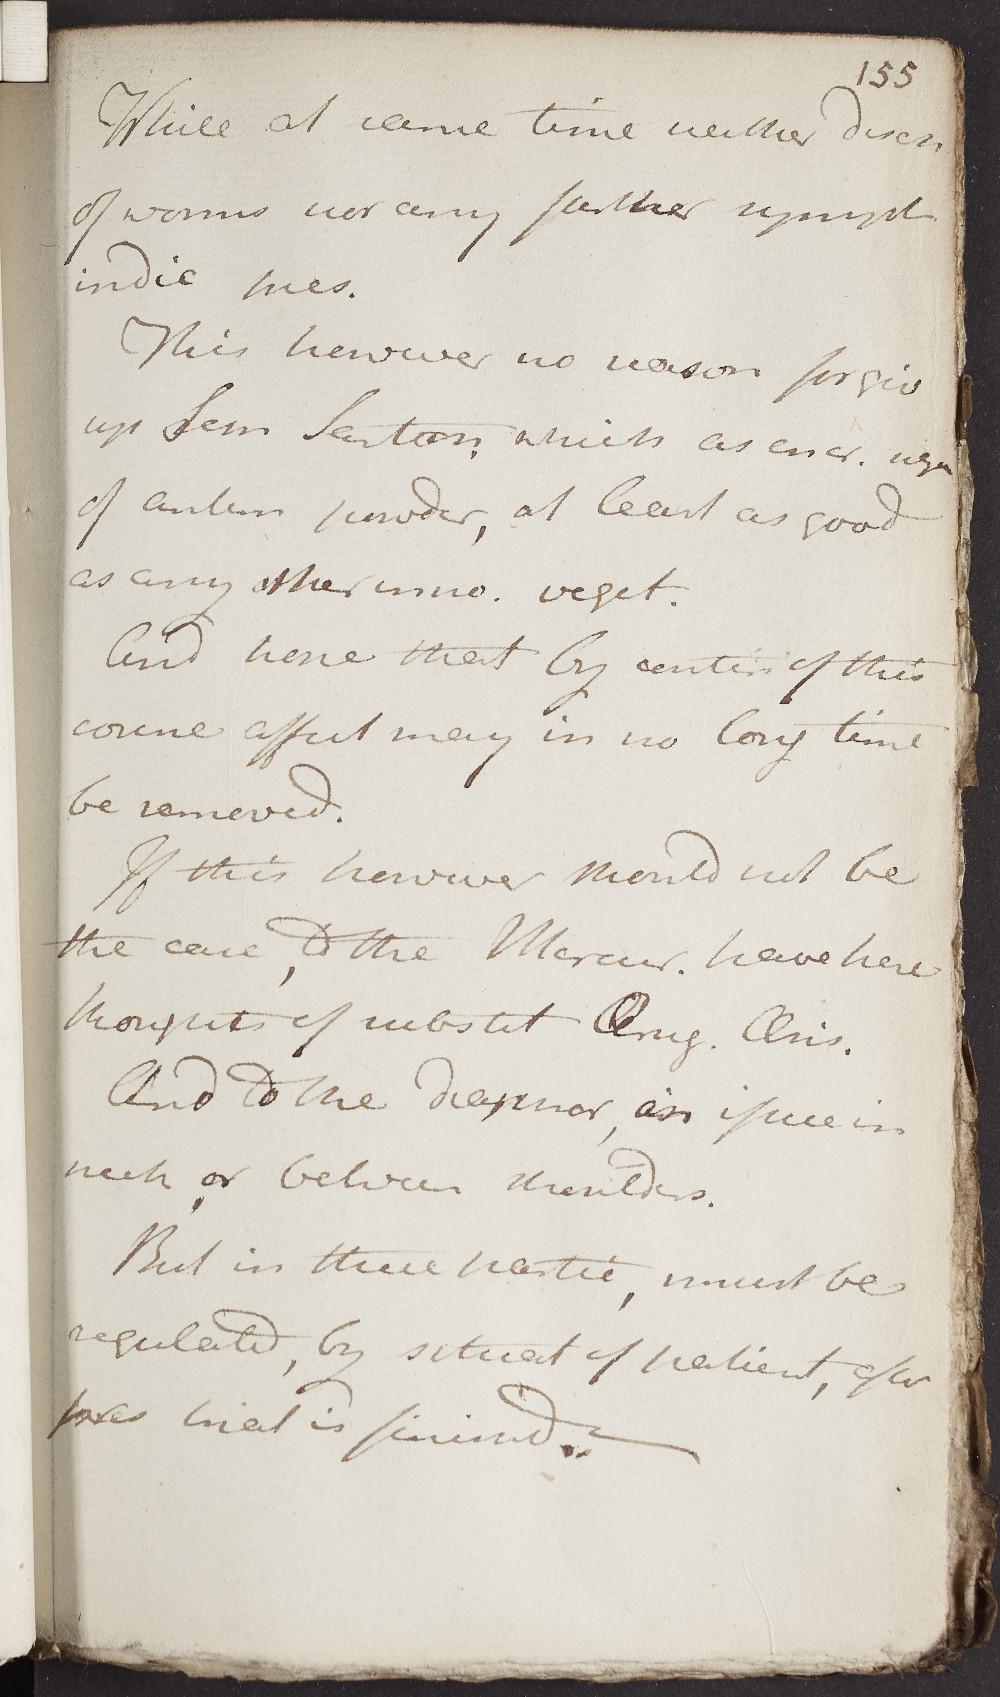 155
While at same time neither disch
of worms nor any further sympt
indic pres.
This however no reason for giv
up Sem Santon, which as an
of anthm powder, at least as good
as any other veget.
And hope that by contin of this
course affect may in no long time
be removed.
If this however should not be
the case, to the Mercur. have here
thoughts of substit Ærug. Æris.
And to the diaphor, an issue in
neck, or between shoulders.
But in these partic, must be
regulated, by situat of patient, after
pres trial is finishd.